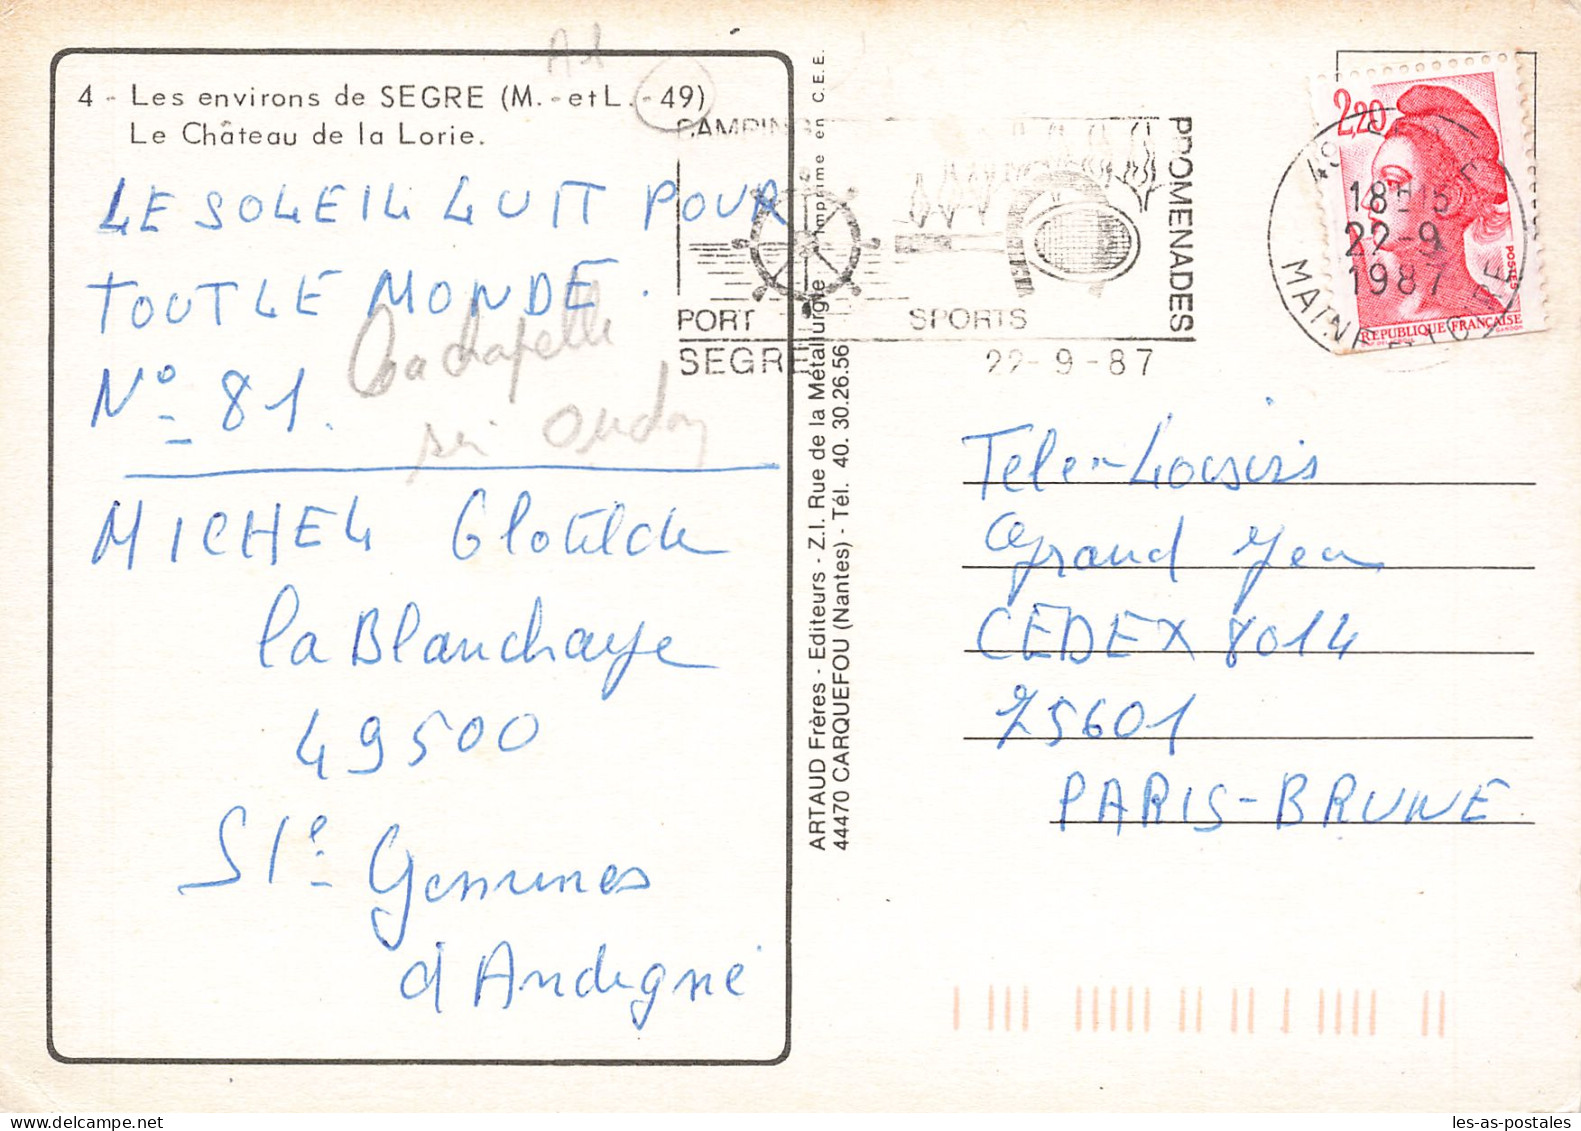 4 - Les environs de SEGRE (M.-et L.-49)
Le Château de la Lorie.
LE SOLEIL LUIT POUR
TOUT LE MONDE.
N° 81.
La chapelle
sur Oudon
MICHEL Clotilde
la Blanchaye
49500
Ste Gemmes
d'Andigné
ARTAUD Frères - Editeurs - Z.I. Rue de la Métallurgie Imprimé en C.E.E.
44470 CARQUEFOU (Nantes) - Tél. 40.30.26.56
CAMPING
PROMENADES
PORT
SPORTS
SEGRE
22-9-87
49 SEGRE
18H15
22-9
1987
MAINE ET LOIRE
2,20
POSTES
REPUBLIQUE FRANÇAISE
Tele-Loisirs
Grand Jeu
CEDEX 8014
75601
PARIS-BRUNE
les-as-postales